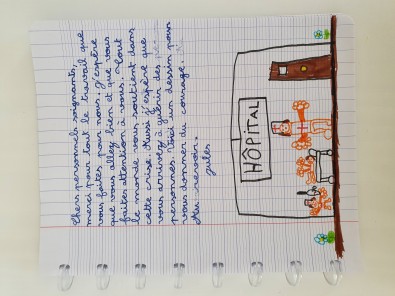 Chers personnels soignants,
merci pour tout le travail que
vous faites pour nous. j'espère
que vous allez bien et que vous
faites attention à vous. Tout
le monde vous soutient dans
cette crise. Aussi j'espère que
vous arrivez à guérir des
personnes. Voici un dessin pour
vous donner du courage.
Au revoir.
jules
HÔPITAL